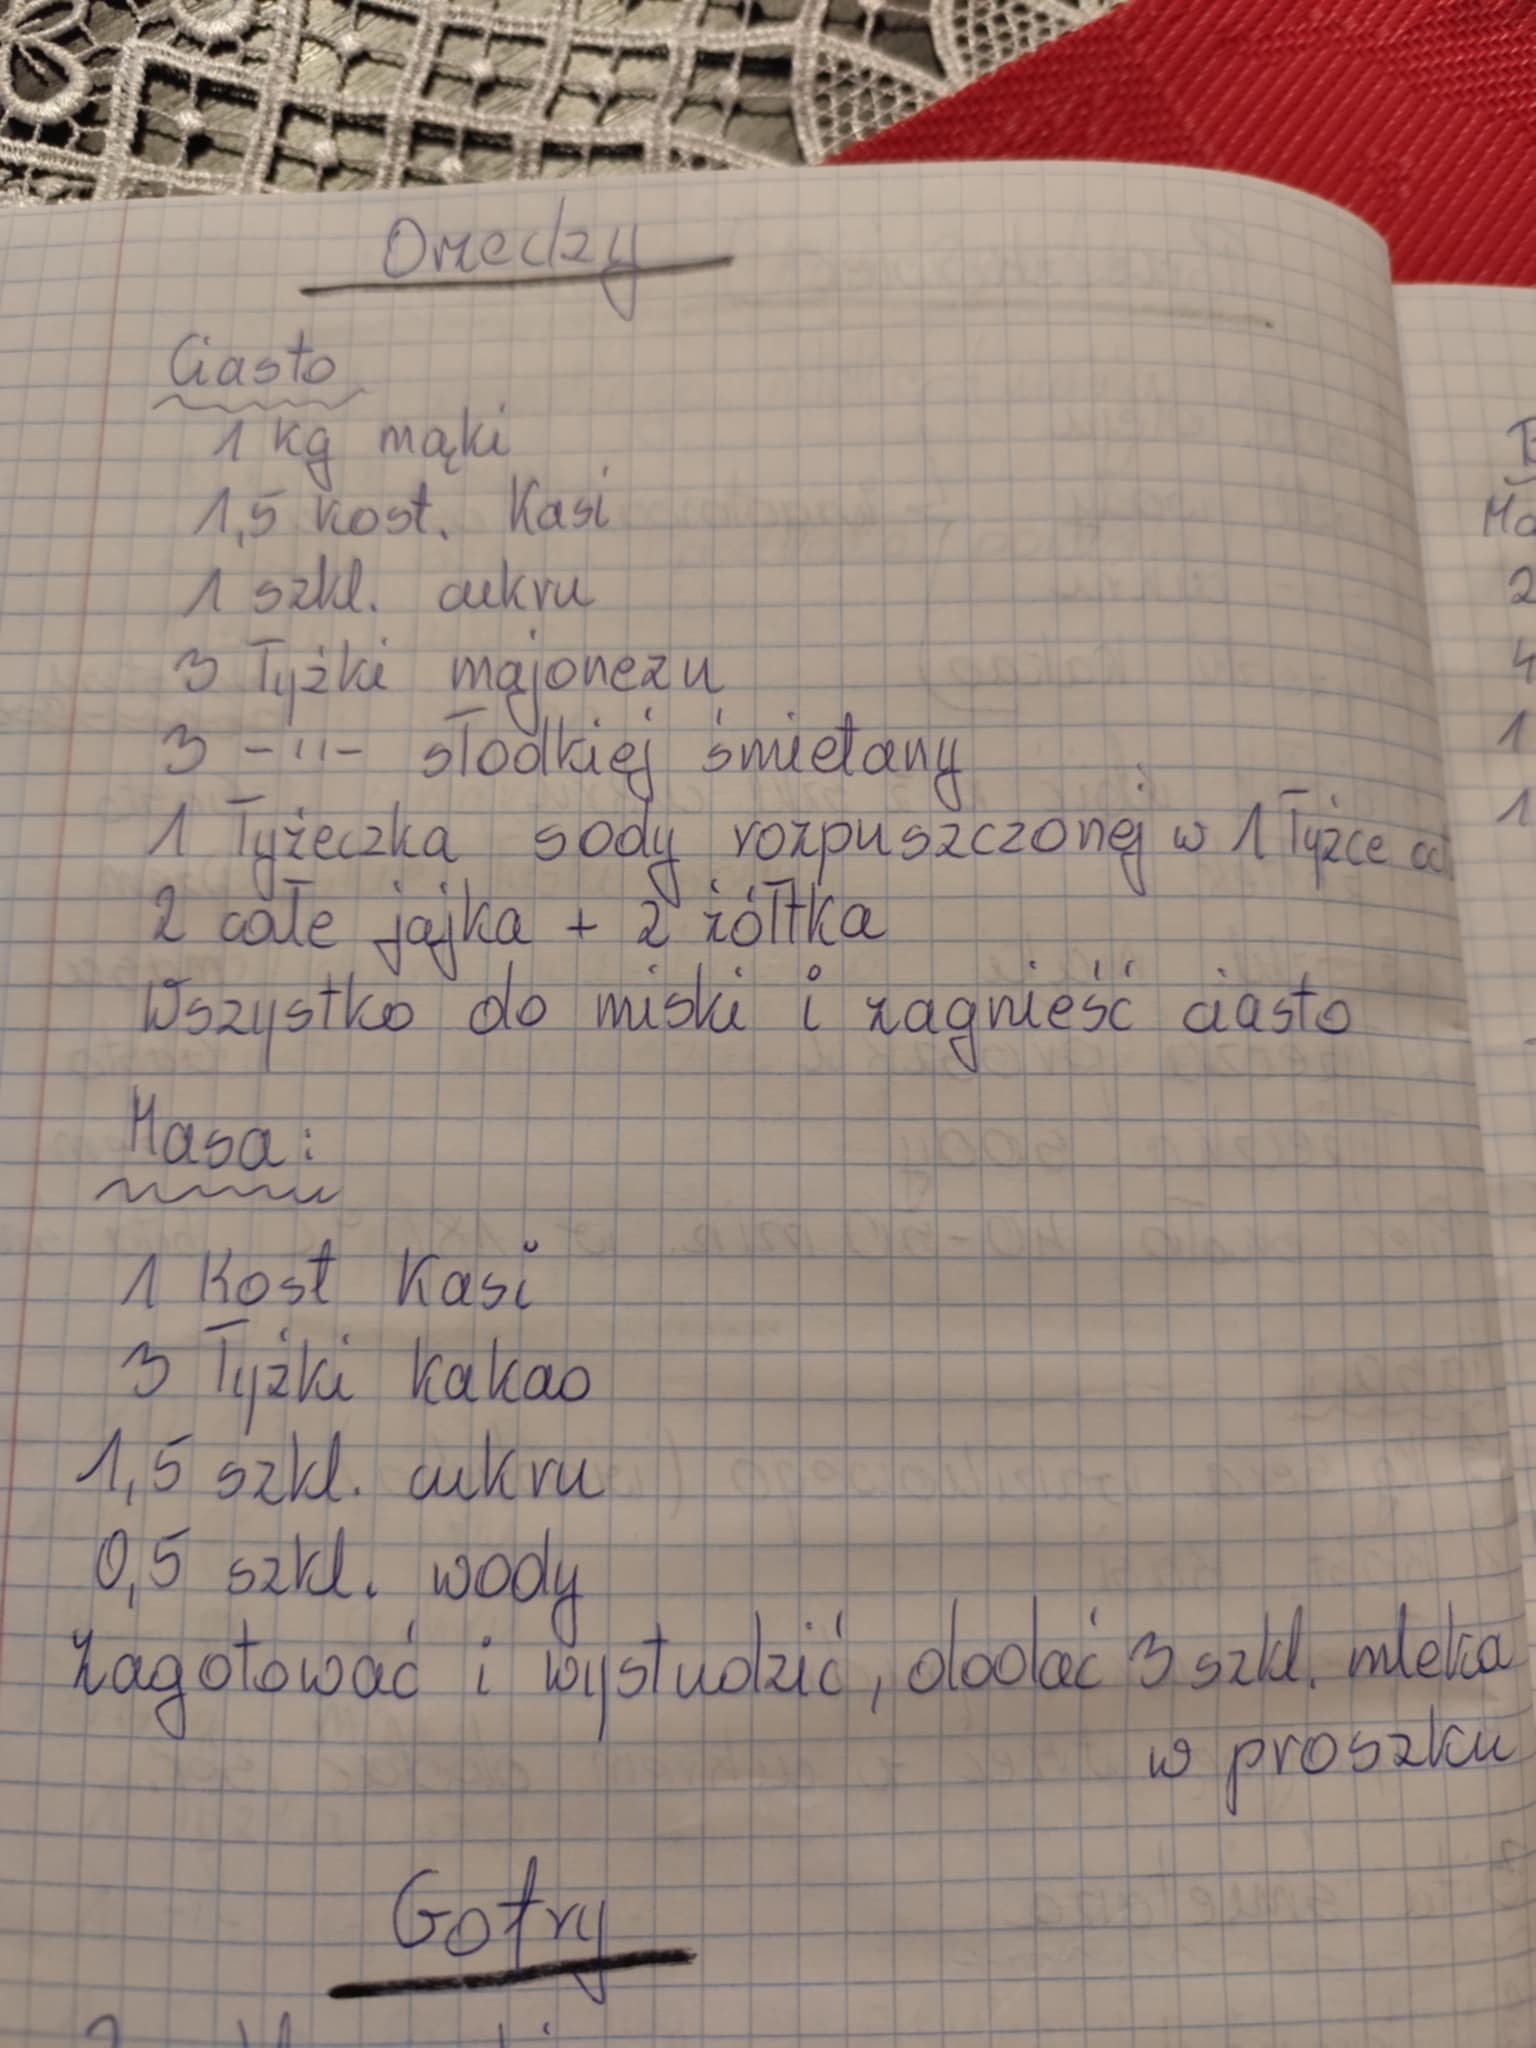 Orzechy
Ciasto
1 kg mąki
1,5 kost. Kasi
1 szkl. cukru
3 łyżki majonezu
3 -"- słodkiej śmietany
1 łyżeczka sody rozpuszczonej w 1 łyżce
2 całe jajka + 2 żółtka
Wszystko do miski i zagnieść ciasto
Masa:
1 Kost Kasi
3 łyżki kakao
1,5 szkl. cukru
0,5 szkl. wody
Zagotować i wystudzić, dodać 3 szkl. mleka
w proszku
Gofry
2
4
1
1